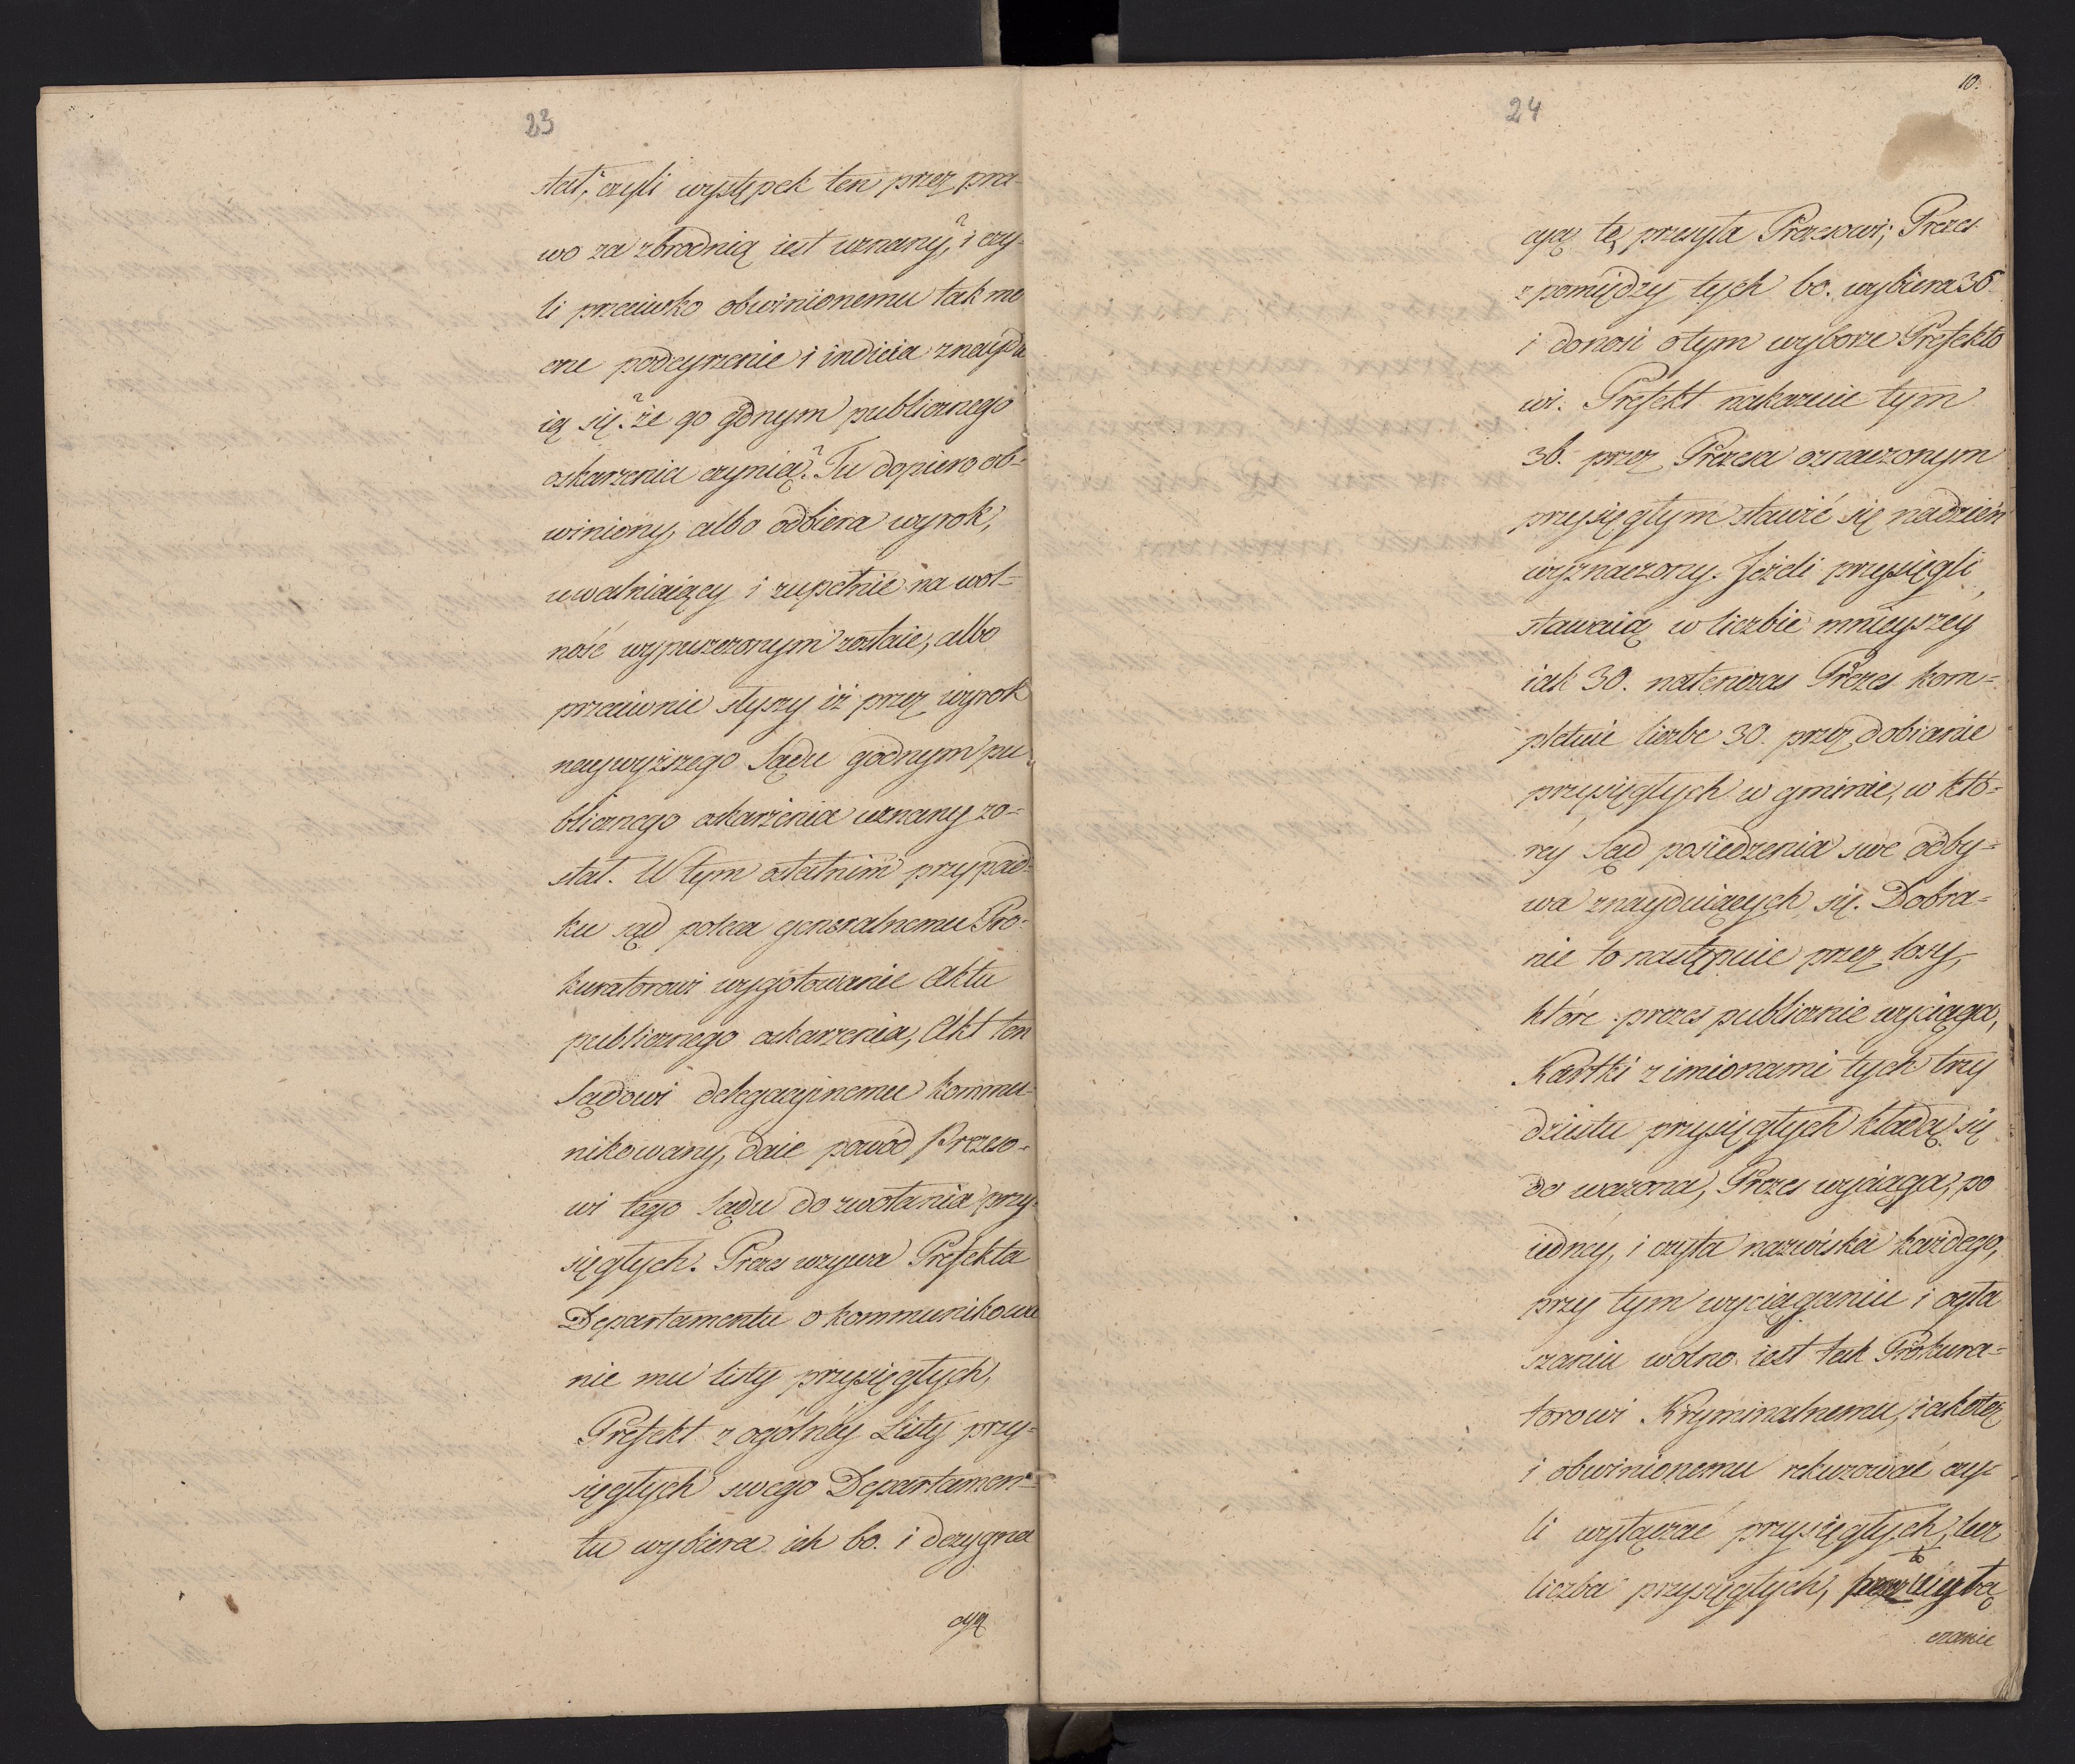 23
stał, czyli występek ten przez pra-
wo za zbrodnią iest uznany? i czy-
li przeciwko obwinionemu tak mo
cne podeyrzenie i indicia znayda
ią się? że go godnym publicznego
oskarzenia czynią? Tu dopiero ob-
winiony, albo odbiera wyrok,
uwalniaiący i zupełnie na wol-
ność wypuszczonym zostaie, albo
przeciwnie słyszy iż przez wyrok
naywyższego Sądu godnym pu
blicznego oskarżenia uznany zo-
stał. W tym ostatnim przypad-
ku sąd poleca generalnemu Pro-
kuratorowi wygotowanie Aktu
publicznego oskarzenia, Akt ten
Sądowi delegacyjnemu kommu-
nikowany, daie powód Prezeso-
wi tego Sądu do zwołania przy-
sięgłych. Prezes wzywa Prefekta
Departamentu o kommunikowa
nie mu listy przysięgłych,
Prefekt z ogólnéy Listy przy-
sięgłych swego Departamen-
tu wybiera ich 60. i dezygna
cyą
10.
24
cyą tę przesyła Prezesowi; Prezes
z pomiędzy tych 60. wybiera 36.
i donosi o tym wyborze Prefekto
wi. Prefekt nakazuie tym
36. przez Prezesa oznaczonym
przysięgłym stawić się na dzień
wyznaczony. Jeżeli przysięgli
stawaią w liczbie mnieyszey
iak 30. natenczas Prezes kom-
pletuie liczbe 30. przez dobieranie
przysięgłych w gminie, w któ-
réy Sąd posiedzenia swe odby-
wa znayduiących się. Dobra-
nie to następuie przez losy,
które prezes publicznie wyciąga,
Kartki z imionami tych trzy
dziestu przysięgłych kładą się
do wazona, Prezes wyciąga, po
iednéy, i czyta nazwiska każdego,
przy tym wyciąganiu i ogła
szaniu wolno iest tak Prokura-
torowi Kryminalnemu, iakoteż
i obwinionemu rekuzować czy-
li wyłączać przysięgłych, lecz
liczba przysięgłych, przez to wyłą
czanie